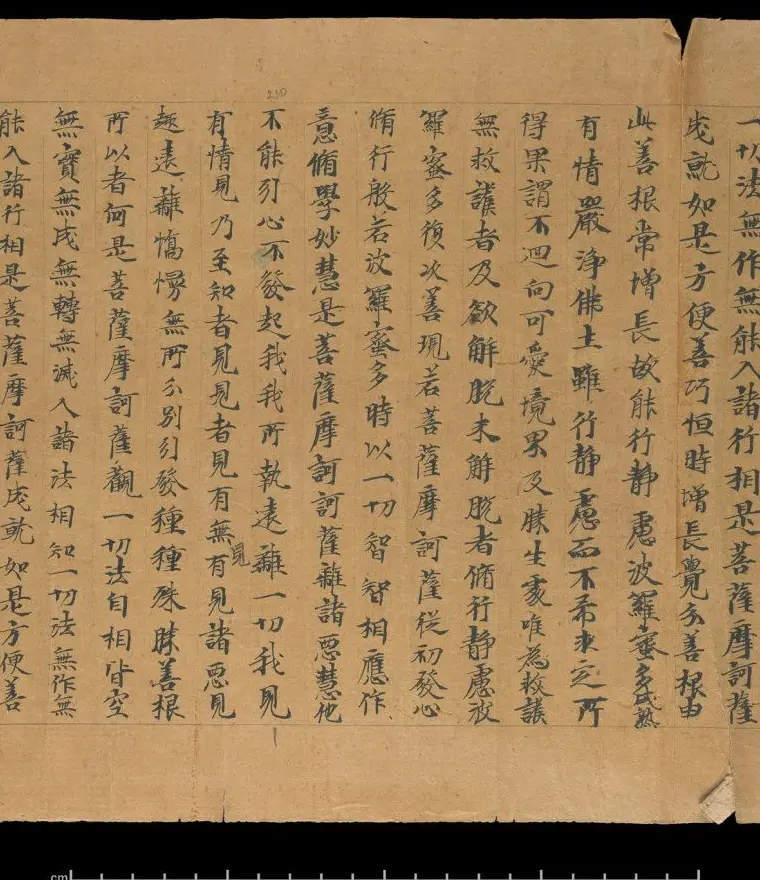 一切法無作無能入諸行相是菩薩摩訶薩
成就如是方便善巧恒時增長覺分善根由
此善根常增長故能行靜慮波羅蜜多成熟
有情嚴淨佛土雖行靜慮而不希求之所
得果謂不迴向可愛境界及勝生處唯為救護
無救護者及欲解脫未解脫者脩行靜慮波
羅蜜多復次善現若菩薩摩訶薩從初發心
脩行般若波羅蜜多時以一切智智相應作
意脩學妙慧是菩薩摩訶訶薩離諸惡慧他
不能引心不發起我我所執遠離一切我見
有情見乃至知者見見者見有無有見諸惡見
見
趣遠離憍慢無所分別引發種種殊勝善根
所以者何是菩薩摩訶薩觀一切法自相皆空
無實無成無轉無滅入諸法相知一切法無作無
能入諸行相是菩薩摩訶薩成就如是方便善
230
cm